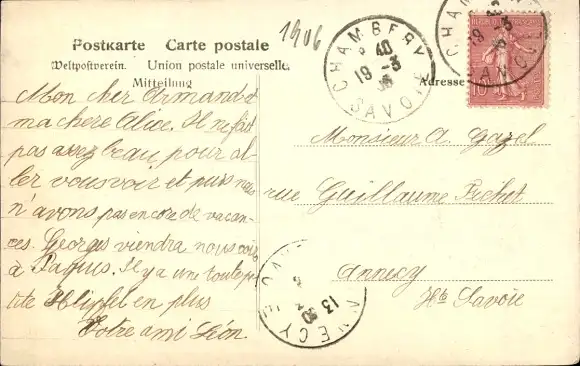 1906
Postkarte Carte postale
Weltpostverein. Union postale universelle.
Mitteilung
Adresse
Mon cher Armand et
ma chère Alice. Il ne fait
pas assez beau pour al
ler vous voir et puis nous
n'avons pas encore de vacan-
ces. Georges viendra nous voir
à Pâques. Il y a une toute pe
tite en plus
Votre ami Léon.
Monsieur A. Gazel
rue Guillaume Fichet
Annecy
Hte Savoie
CHAMBERY
40
19 -3
06
SAVOIE
CHAM
19 -3
SAVOIE
ANNECY
13 30